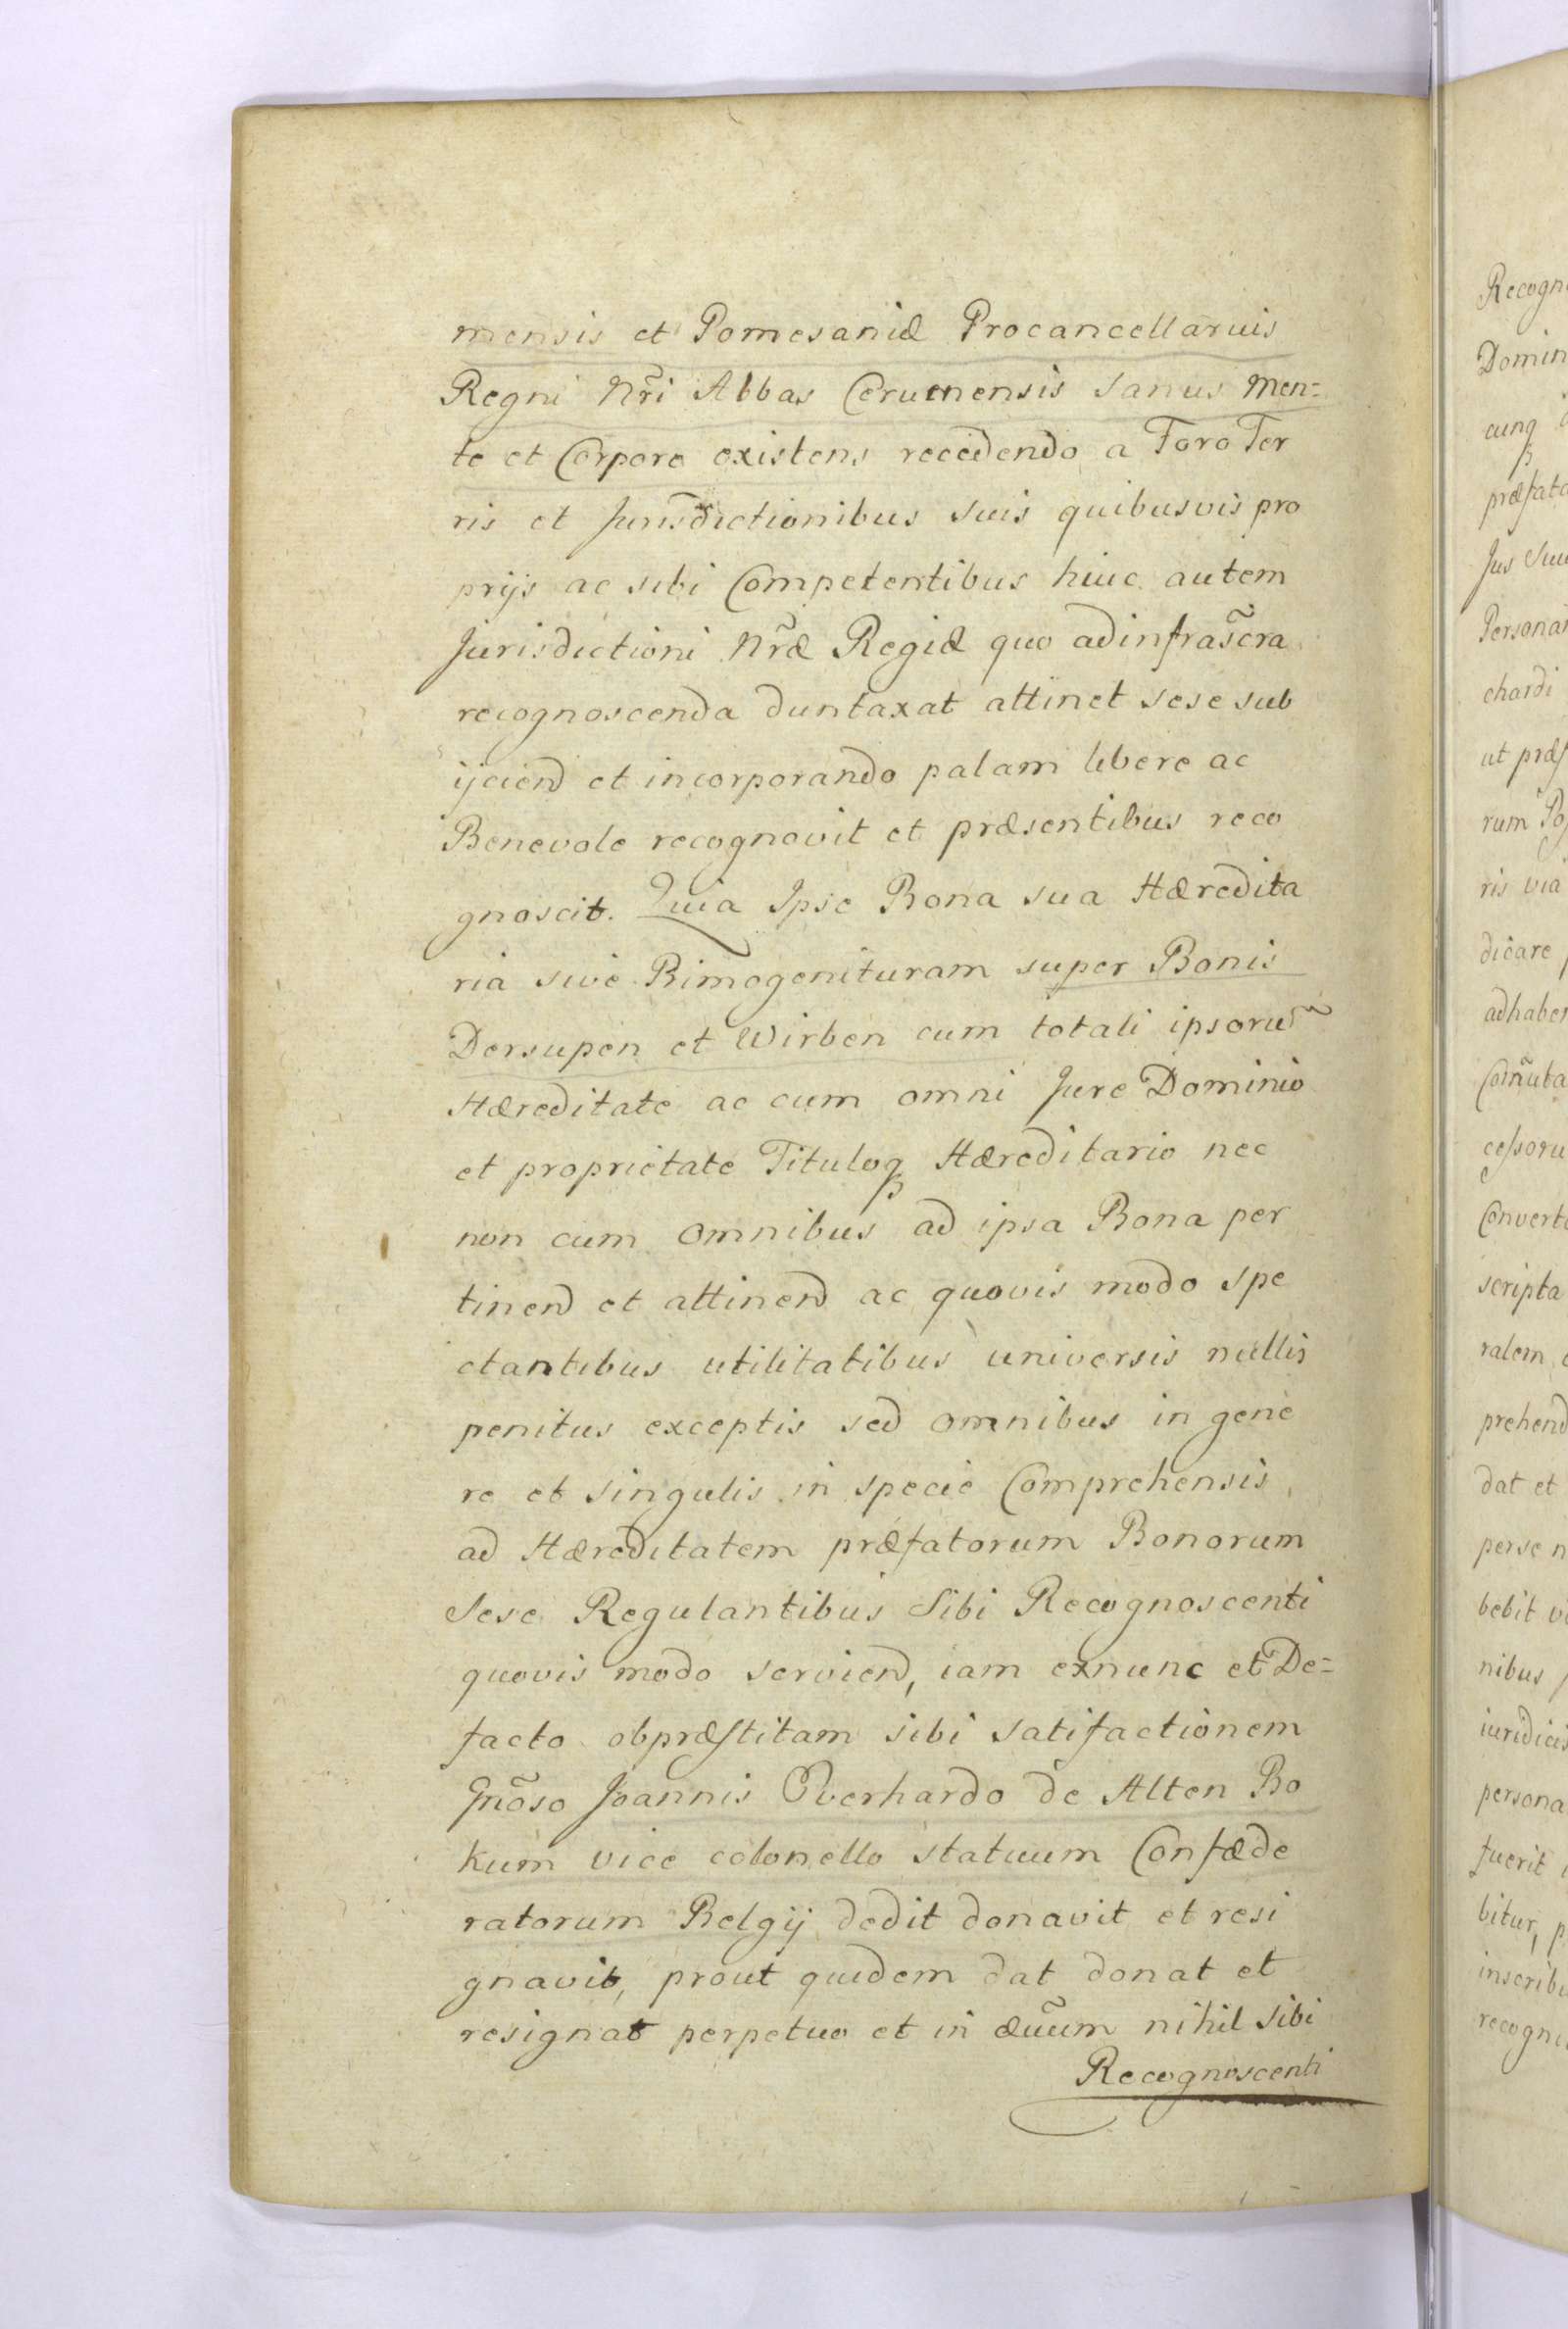 mensis et Pomesaniæ Procancellarius
Regni Nr̃i Abbas Cerumensis Sanus Men=
te et Corpore existens recedendo a Foro Ter
ris et Jurisdictionibus suis quibusvis pro
prijs ac sibi Competentibus huic autem
Jurisdictioni Nr̃æ Regiæ quo ad infras̃cra
recognoscenda duntaxat attinet sese sub
ijciend et incorporando palam libere ac
Benevole recognovit et præsentibus reco
gnoscit. Quia Ipse Bona sua Hæredita
ria sive Bimogenituram super Bonis
Dersupen et Wirben cum totali ipsorum
Hæreditate ac cum omni Jure Dominio
et proprietate Tituloq Hæreditario nec
non cum omnibus ad ipsa Bona per
tinend et attinend ac quovis modo spe
ctantibus utilitatibus universis nullis
penitus exceptis sed omnibus in gene
re et singulis in specie Comprehensis
ad Hæreditatem præfatorum Bonorum
Sese Regulantibus Sibi Recognoscenti
quovis modo serviend, iam exnunc et De=
facto obpræstitam sibi satifactionem
Gnõso Joannis Everhardo de Alten Bo
kum vice colonello statuum Confæde
ratorum Belgij dedit donavit et resi
gnavit, prout quidem dat donat et
resignat perpetuo et in æũum nihil sibi
Recognoscenti
Recogn
Domin
cunq
præfato
Jus Suu
Personar
chardi
ut præf
rum
ris via
dicare
adhaber
Com̃uta
cessoru
Converte
scripta
ralem
prehend
dat et
perse n
bebit
nibus
iuridicis
persona
fuerit
bitur,
inscribe
recogni